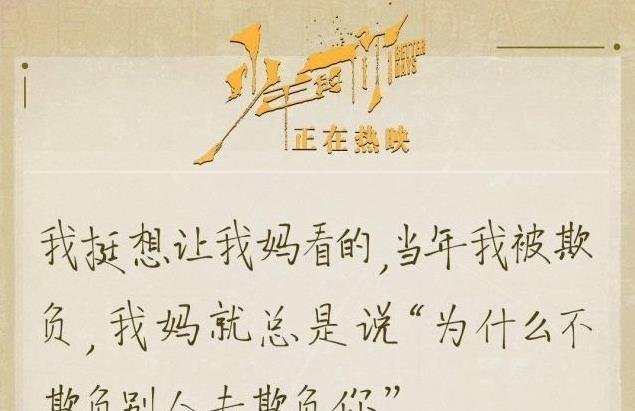 少年的你
BETTER
DAYS
正在热映
我挺想让我妈看的,当年我被欺
负,我妈就总是说“为什么不
欺负别人去欺负你”